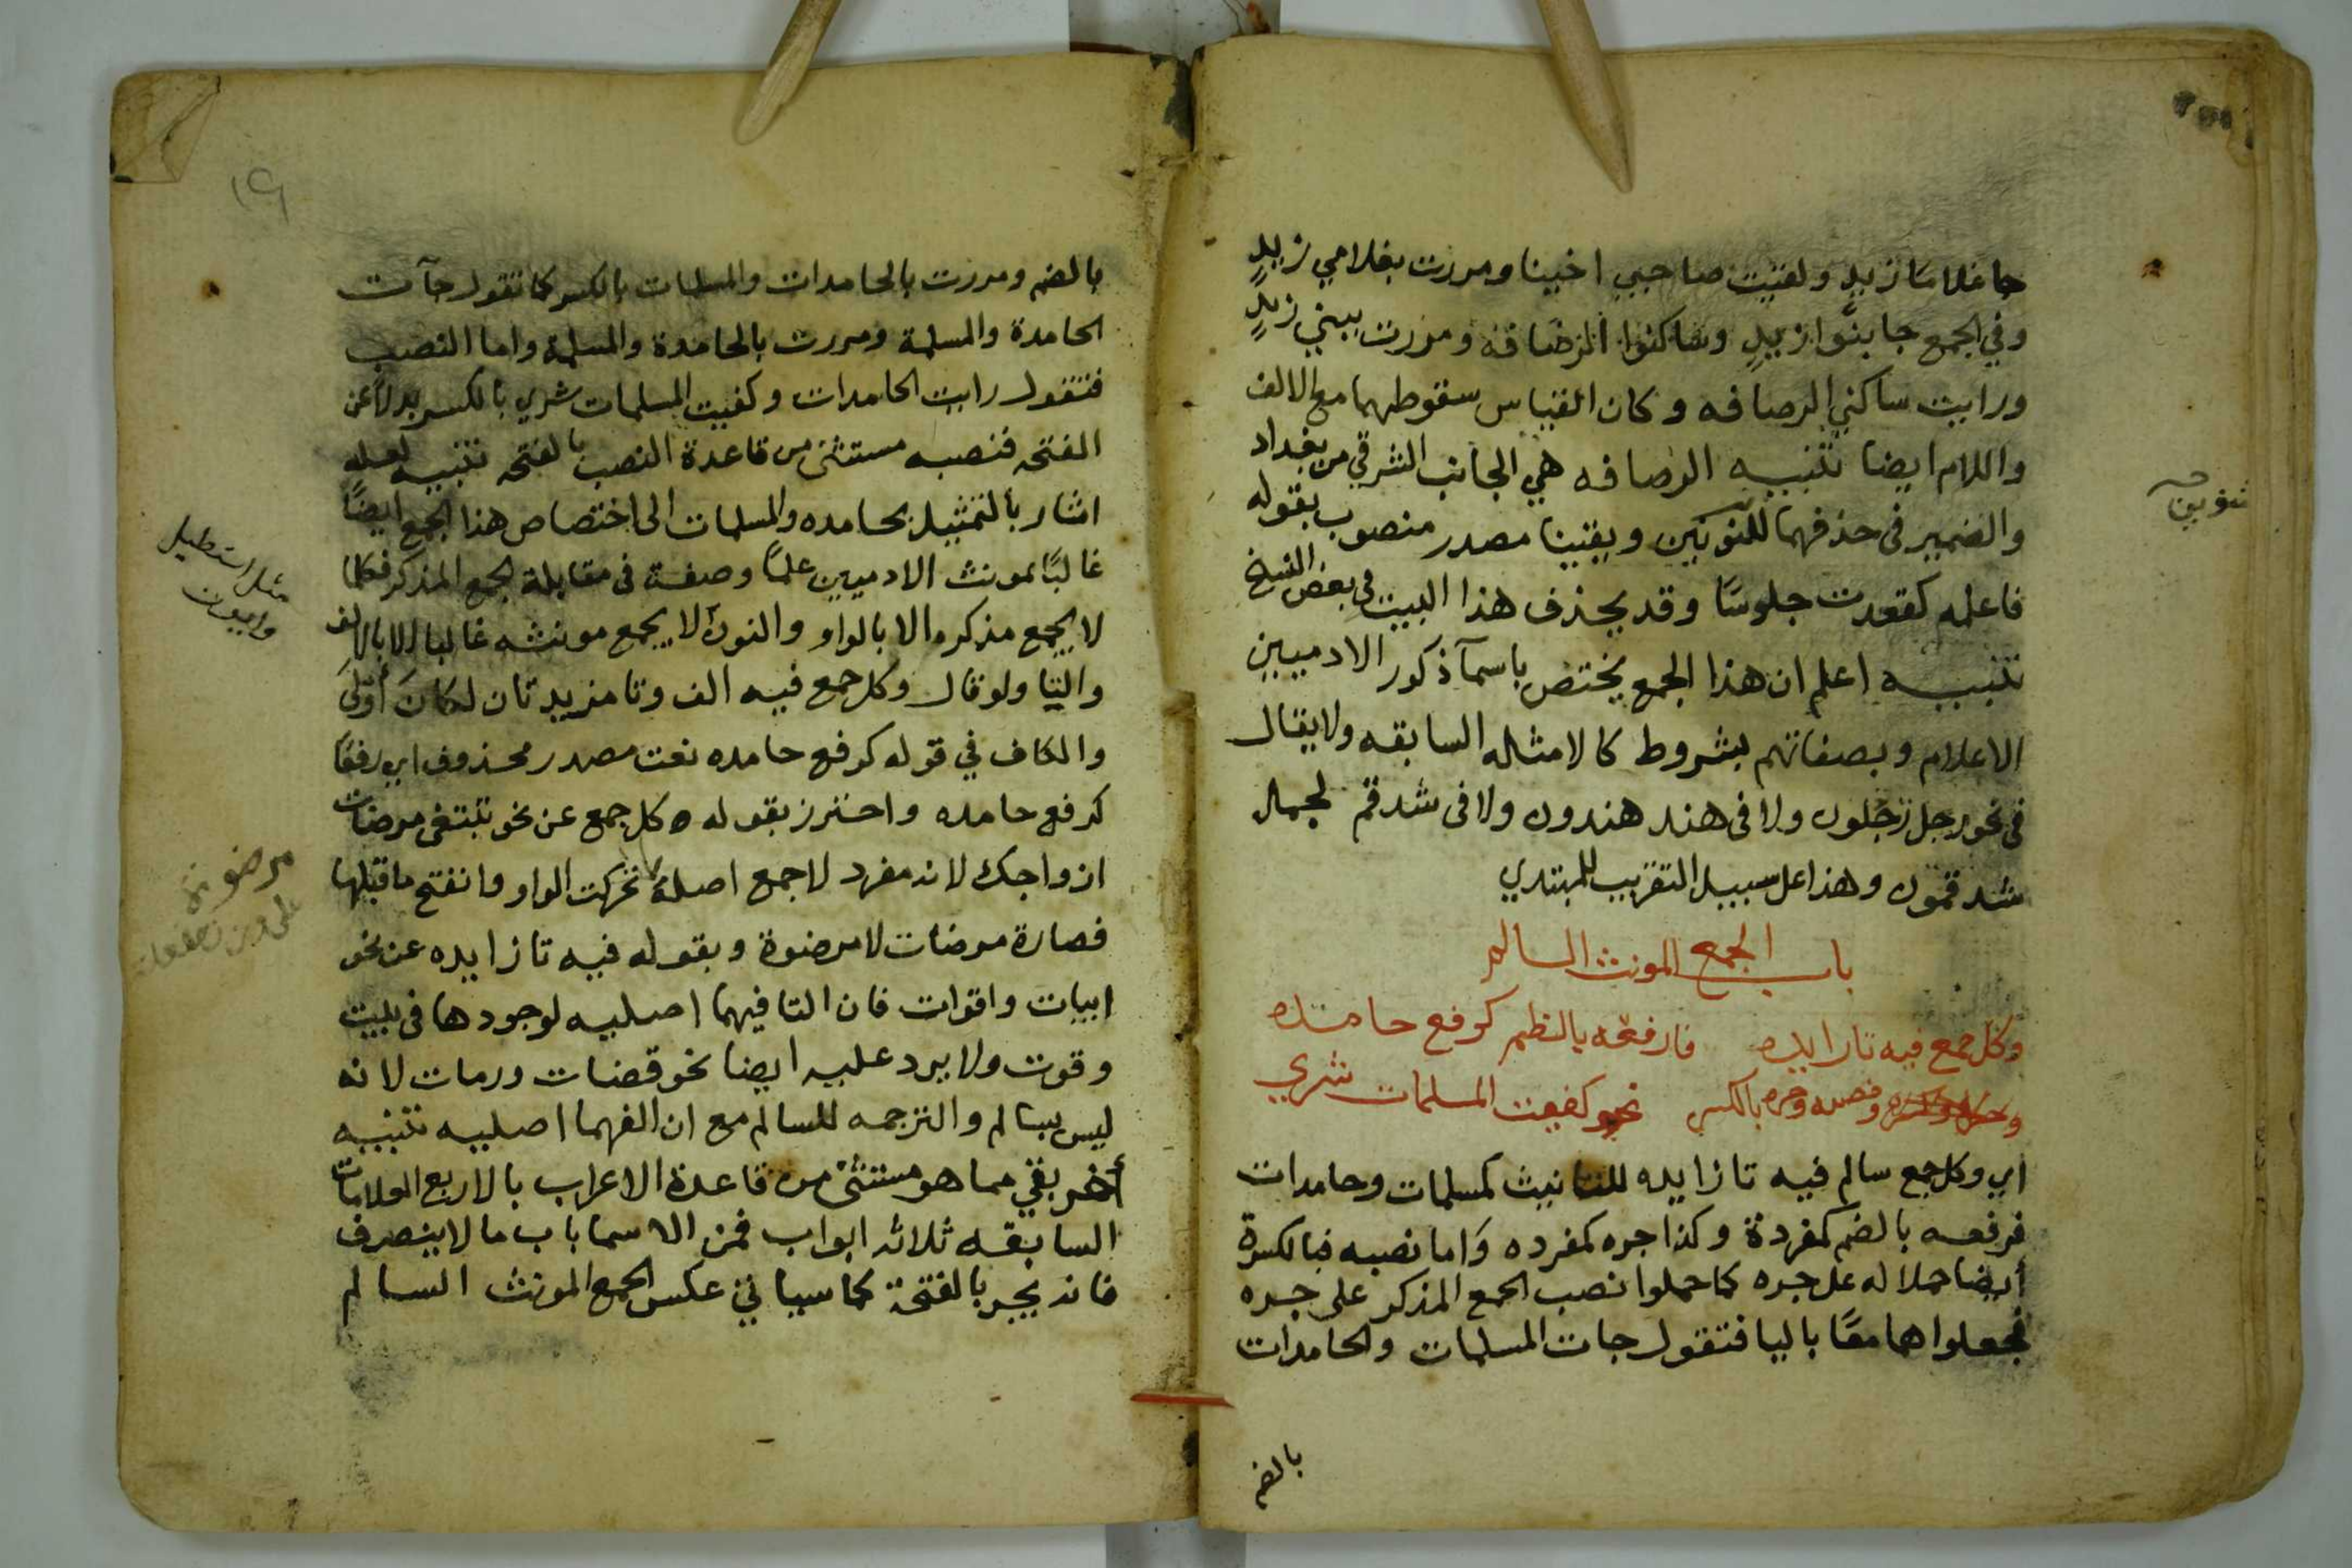 جا غلاما زيدٍ ولقيت صاحبي اخينا ومررت بغلامي زيدٍ
وفي الجمع جا بنوا زيدٍ وساكنوا الرصافه ومررت ببني زيدٍ
ورايت ساكني الرصافه وكان القياس سقوطهما مع الالف
واللام ايضا تنبيه الرصافه هي الجانب الشرقي من بغداد
والضمير فى حذفهما للنونين ويقينا مصدر منصوب بقوله
تنوين
فاعلمه كقعدت جلوسًا وقد يحذف هذا البيت فى بعض النسخ
تنبيه اعلم ان هذا الجمع يختص باسمآ ذكور الادميين
الاعلام وبصفاتهم بشروط كالامثله السابقه ولا يقال
فى نحو رجل رجلون ولا فى هند هندون ولا فى شدقم لجمال
شدقمون وهذا على سبيل التقريب للمبتدي
باب الجمع المونث السالم
وكل جمع فيه تا زايده فارفعه بالضم كرفع حامده
ونصبه وجره بالكسر نحو كفيت المسلمات شري
اي وكل جمع سالم فيه تا زايده للتانيث كمسلمات وحامدات
فرفعه بالضم كمفردة وكذا جره كمفرده وَاما نصبه فبالكسرة
أيضا حملا له على جره كما حملوا نصب الجمع المذكر على جره
فجعلوا هما معًا باليا فتقول جات المسلمات والحامدات
بالضم
١٩
بالضم ومررت بالحامدات والمسلمات بالكسر كما تقول جآت
الحامدة والمسلمة ومررت بالحامدة والمسلمة واما النصب
فتقول رايت الحامدات وكفيت المسلمات شري بالكسر بدلاً عن
الفتحه فنصبه مستثنى من قاعدة النصب بالفتحه تنبيه لعله
اشار بالتمثيل بحامده والمسلمات الى اختصاص هذا الجمع ايضًا
غالبًا بمونث الادميين علمًا وصفة فى مقابلة لجمع المذكر فكلما
مثل اسطبل
وايوان
لا يجمع مذكره الا بالواو والنون لا يجمع مونثه غالبا الا بالالف
والتا ولو قال وكل جمع فيه الف وتا مزيدتان لكانَ أولَى
والكاف في قوله كرفع حامده نعت مصدر محذوف اي رفعًا
كرفع حامده واحترز بقوله كل جمع عن نحو تبتغى مرضات
ازواجك لانه مفرد لا جمع اصلهُ تحركت الواو وانفتح ما قبلها
مرضوة
على وزن مفعلة
فصارة مرضات لا مرضوة وبقوله فيه تا زايده عن نحو
ابيات واقوات فان التا فيهما اصليه لوجودها فى بيت
وقوت ولا يرد عليه ايضا نحو قضات ورمات لانه
ليس بسالم والترجمه للسالم مع ان الفهما اصليه تنبيه
أخر بقي مما هو مستثنى من قاعدة الاعراب بالاربع العلامات
السابقه ثلاثه ابواب فمن الاسما باب ما لا ينصرف
فانه يجر بالفتحة كما سياتي عكس الجمع المونث السالم